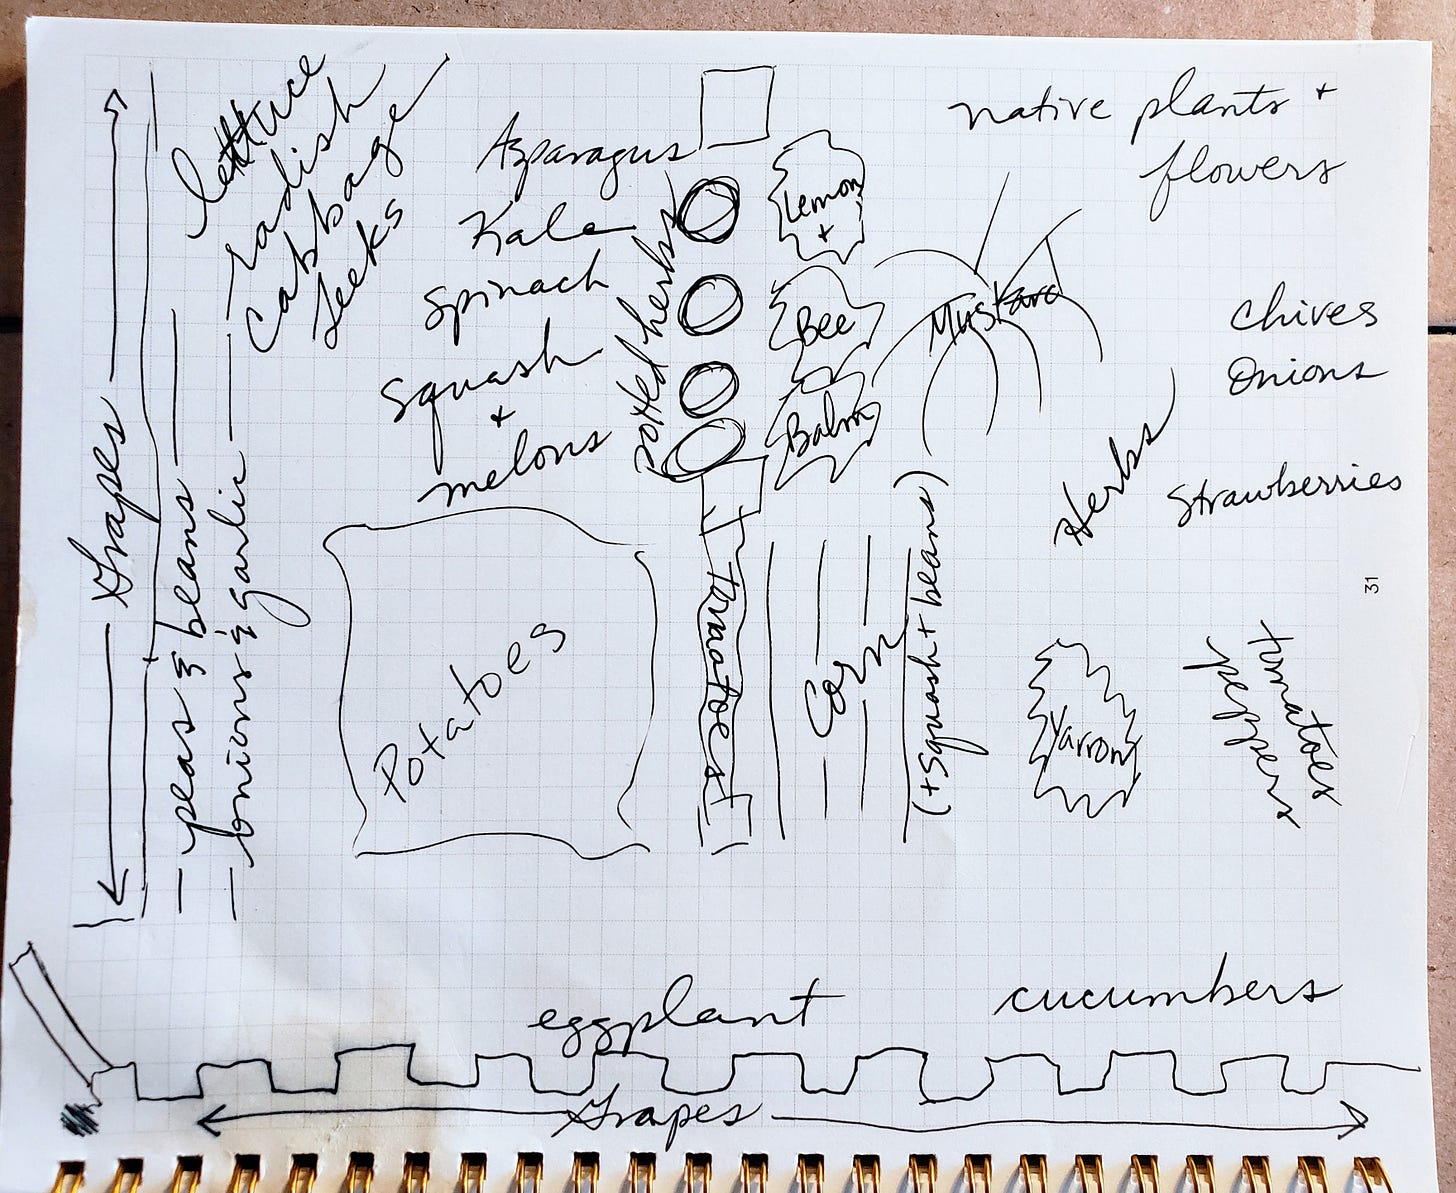 native plants +
flowers
lettuce
radish
cabbage
leeks
Asparagus
Kale
Spinach
Squash
+
melons
potted herbs
Lemon
+
Bee
Balm
Mustard
Chives
Onions
Herbs
Strawberries
Grapes
peas & beans
onions & garlic
Potatoes
tomatoes
Corn
(+Squash + beans)
Yarrow
tomatoes
peppers
31
eggplant
cucumbers
Grapes